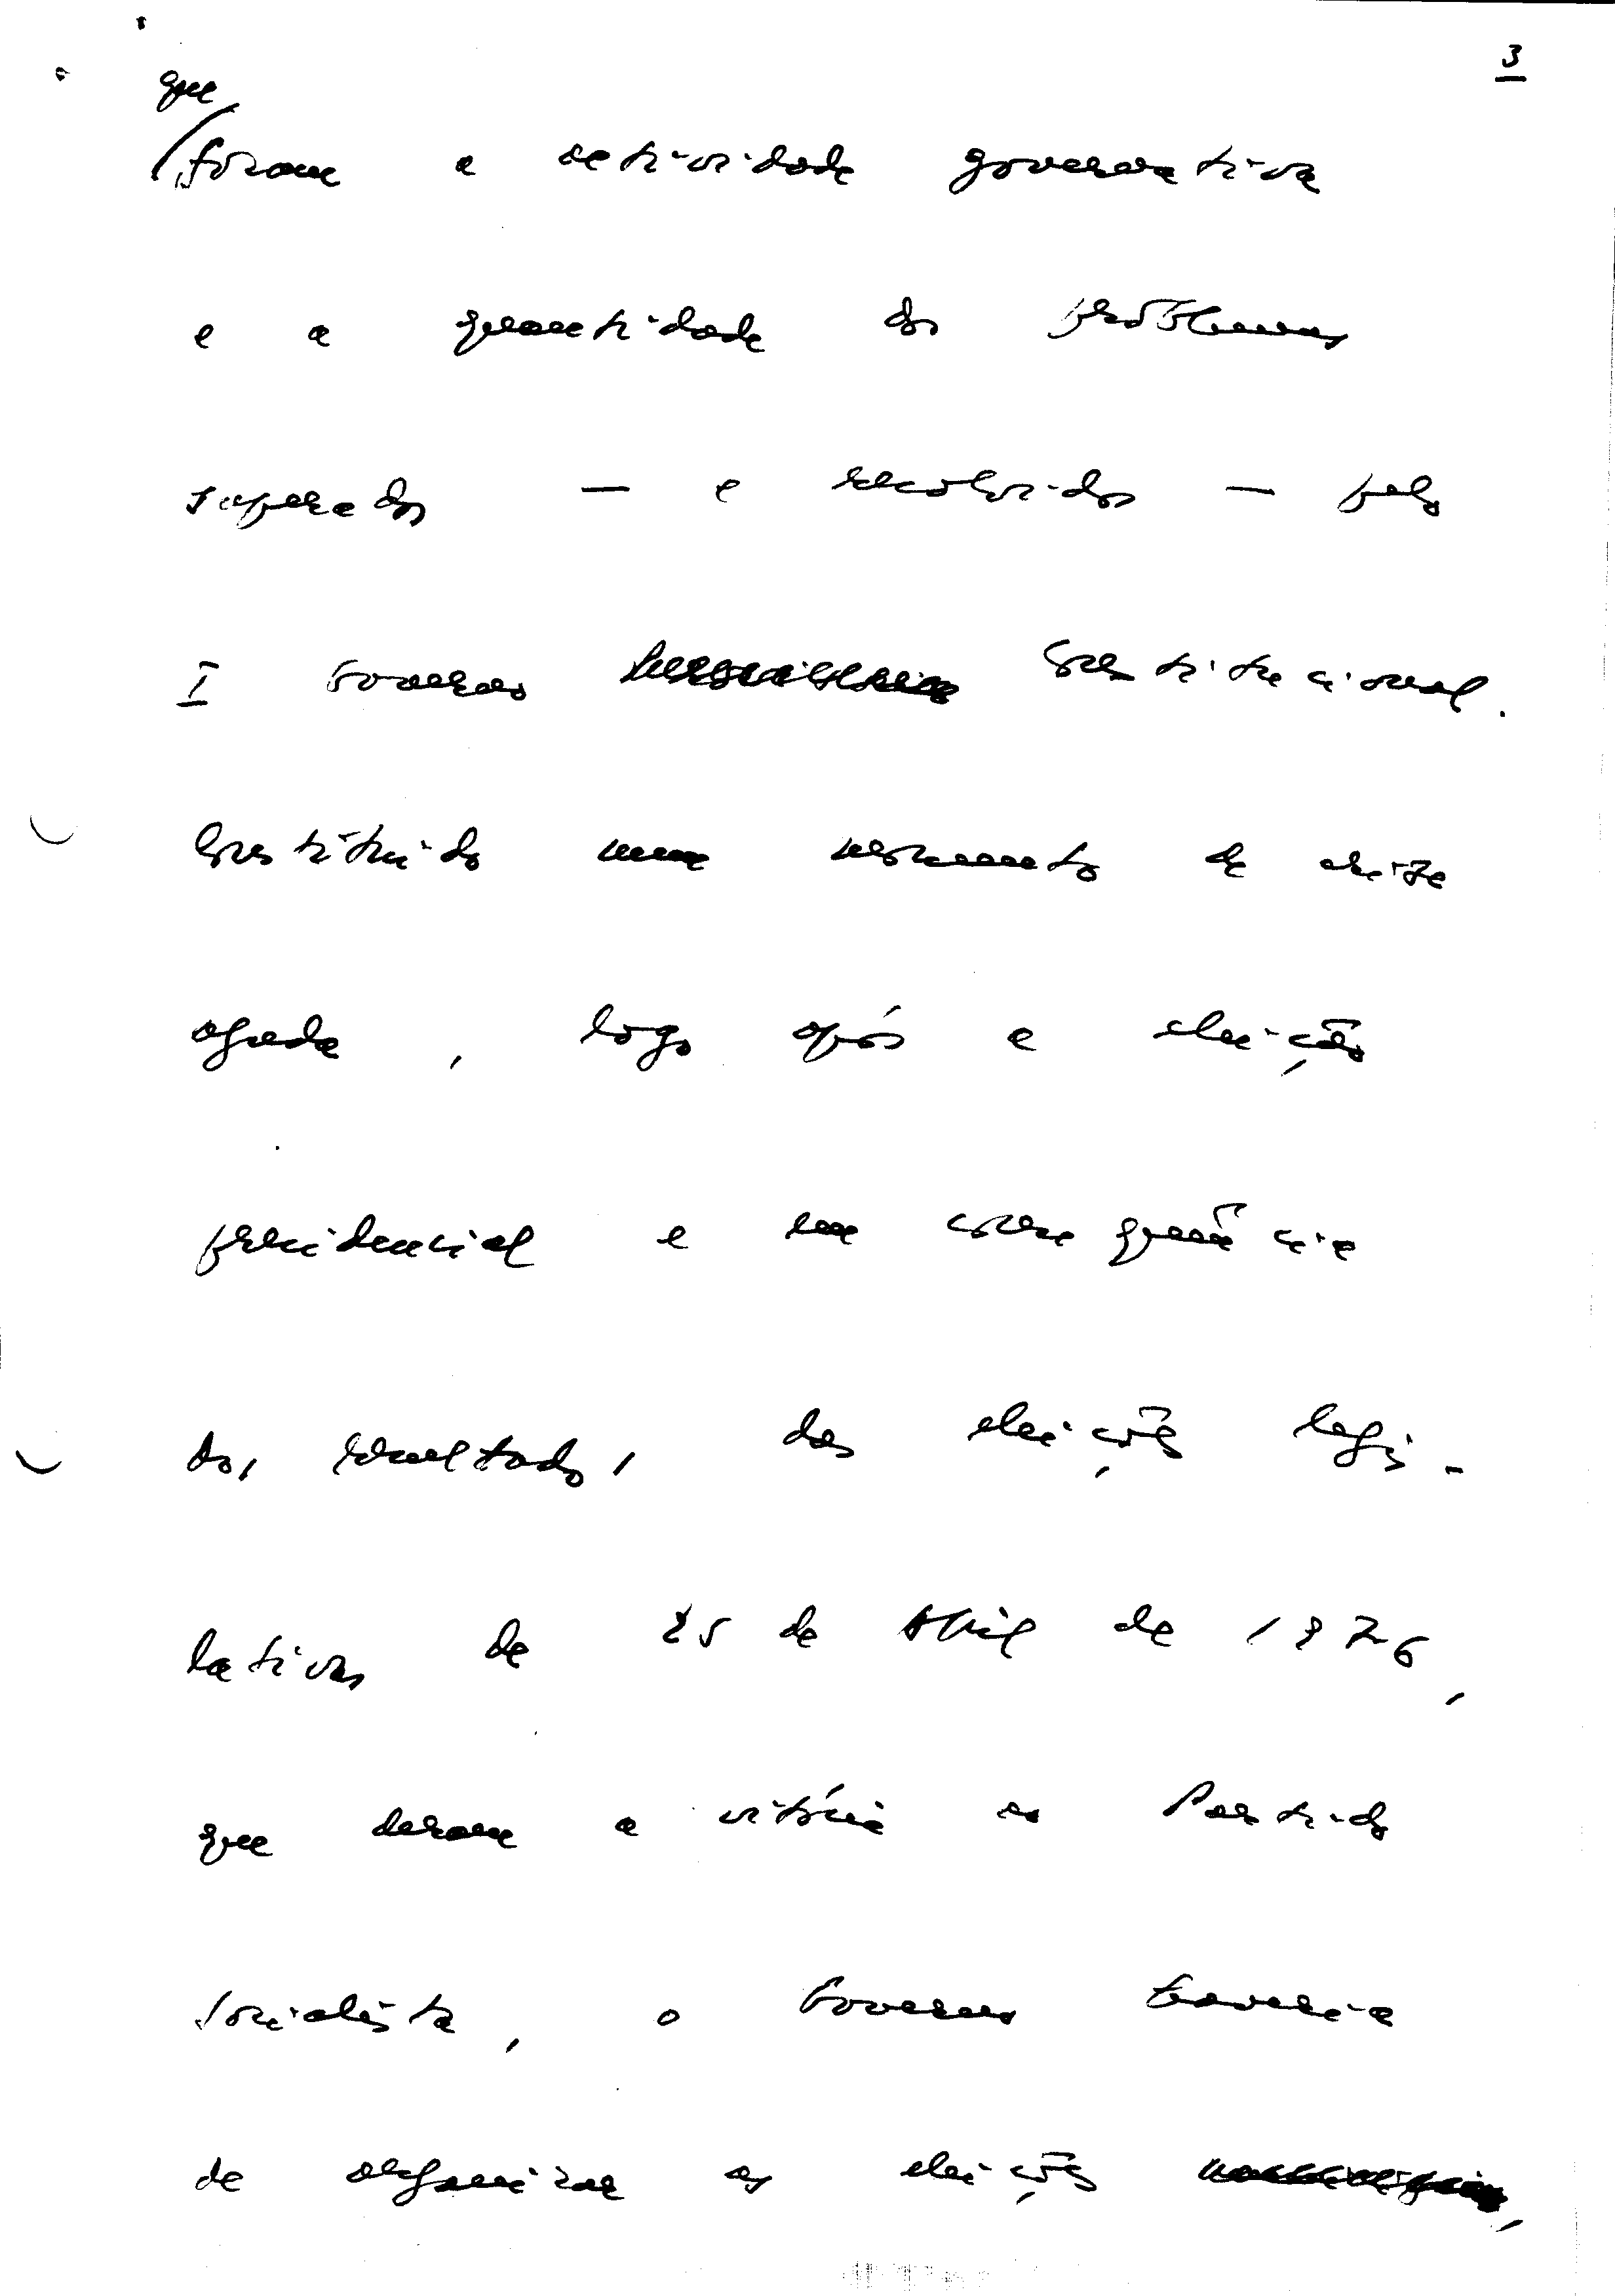 3
que
foram a actividade governativa
e a quantidade dos problemas
superados — e resolvidos — pelo
I Governo Constitucional.
Constituído num momento de crise
aguda, logo após a eleição
presidencial e em consequência
dos resultados das eleições legis-
lativas de 25 de Abril de 1976,
que deram a vitória ao Partido
Socialista, o Governo haveria
de organizar as eleições